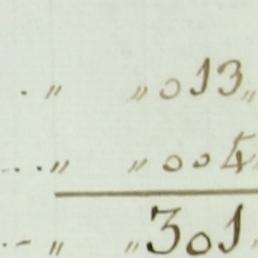 . „ „ 013 „
... „ „ 004 „
.. „ „ 301 „